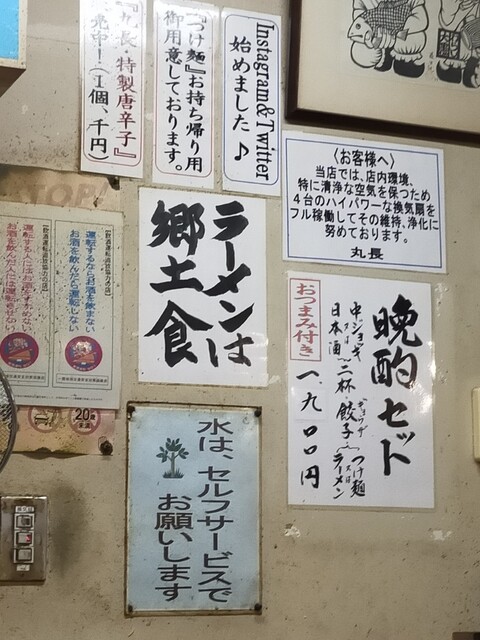 『丸長・特製唐辛子』
売中ー！(1個、千円)
『つけ麺』お持ち帰り用
御用意しております。
Instagram&Twitter
始めました♪
〈お客様へ〉
当店では、店内環境、
特に清浄な空気を保つため
4台のハイパワーな換気扇を
フル稼働してその維持、浄化に
努めております。
丸長
ラーメンは
郷土食
晩酌セット
中ジョッキ
又は
日本酒
二杯・餃子
ギョウザ
つけ麺
又は
ラーメン
おつまみ付き
一、九〇〇円
水は、セルフサービスで
お願いします
運転するならお酒を飲まない
お酒を飲んだら運転しない
運転する人にはお酒をすすめない
お酒を飲んだ人には運転させない
20歳